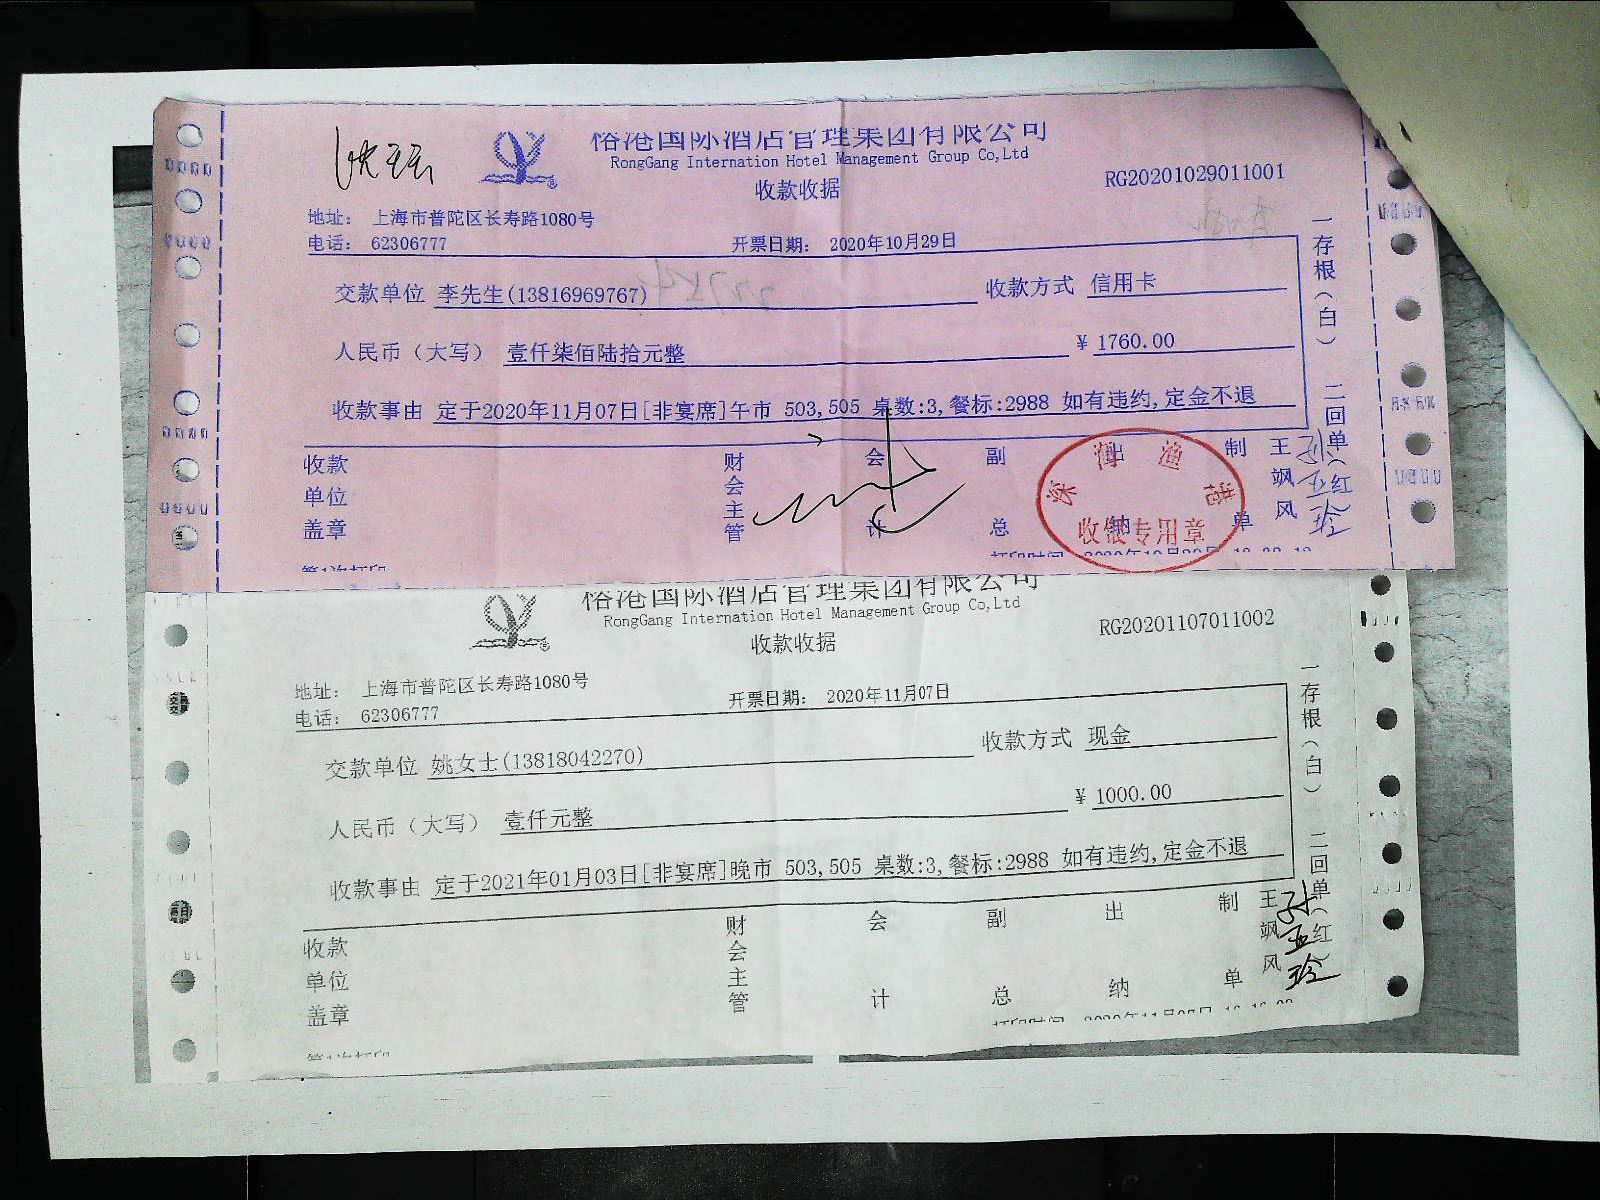 榕港国际酒店管理集团有限公司
RongGang Internation Hotel Management Group Co,Ltd
收款收据
RG20201029011001
地址： 上海市普陀区长寿路1080号
电话： 62306777
开票日期： 2020年10月29日
交款单位 李先生(13816969767)
收款方式 信用卡
人民币（大写） 壹仟柒佰陆拾元整
¥ 1760.00
收款事由 定于2020年11月07日[非宴席]午市 503,505 桌数:3,餐标:2988 如有违约,定金不退
一存根（白） 二回单（红）
收款单位盖章
财会主管
会计
副总
出纳
制单
王飒风
孙亚玲
深海渔港
收银专用章
第1次打印
打印时间
榕港国际酒店管理集团有限公司
RongGang Internation Hotel Management Group Co,Ltd
收款收据
RG20201107011002
地址： 上海市普陀区长寿路1080号
电话： 62306777
开票日期： 2020年11月07日
交款单位 姚女士(13818042270)
收款方式 现金
人民币（大写） 壹仟元整
¥ 1000.00
收款事由 定于2021年01月03日[非宴席]晚市 503,505 桌数:3,餐标:2988 如有违约,定金不退
一存根（白） 二回单（红）
收款单位盖章
财会主管
会计
副总
出纳
制单
王飒风
孙亚玲
第1次打印
打印时间